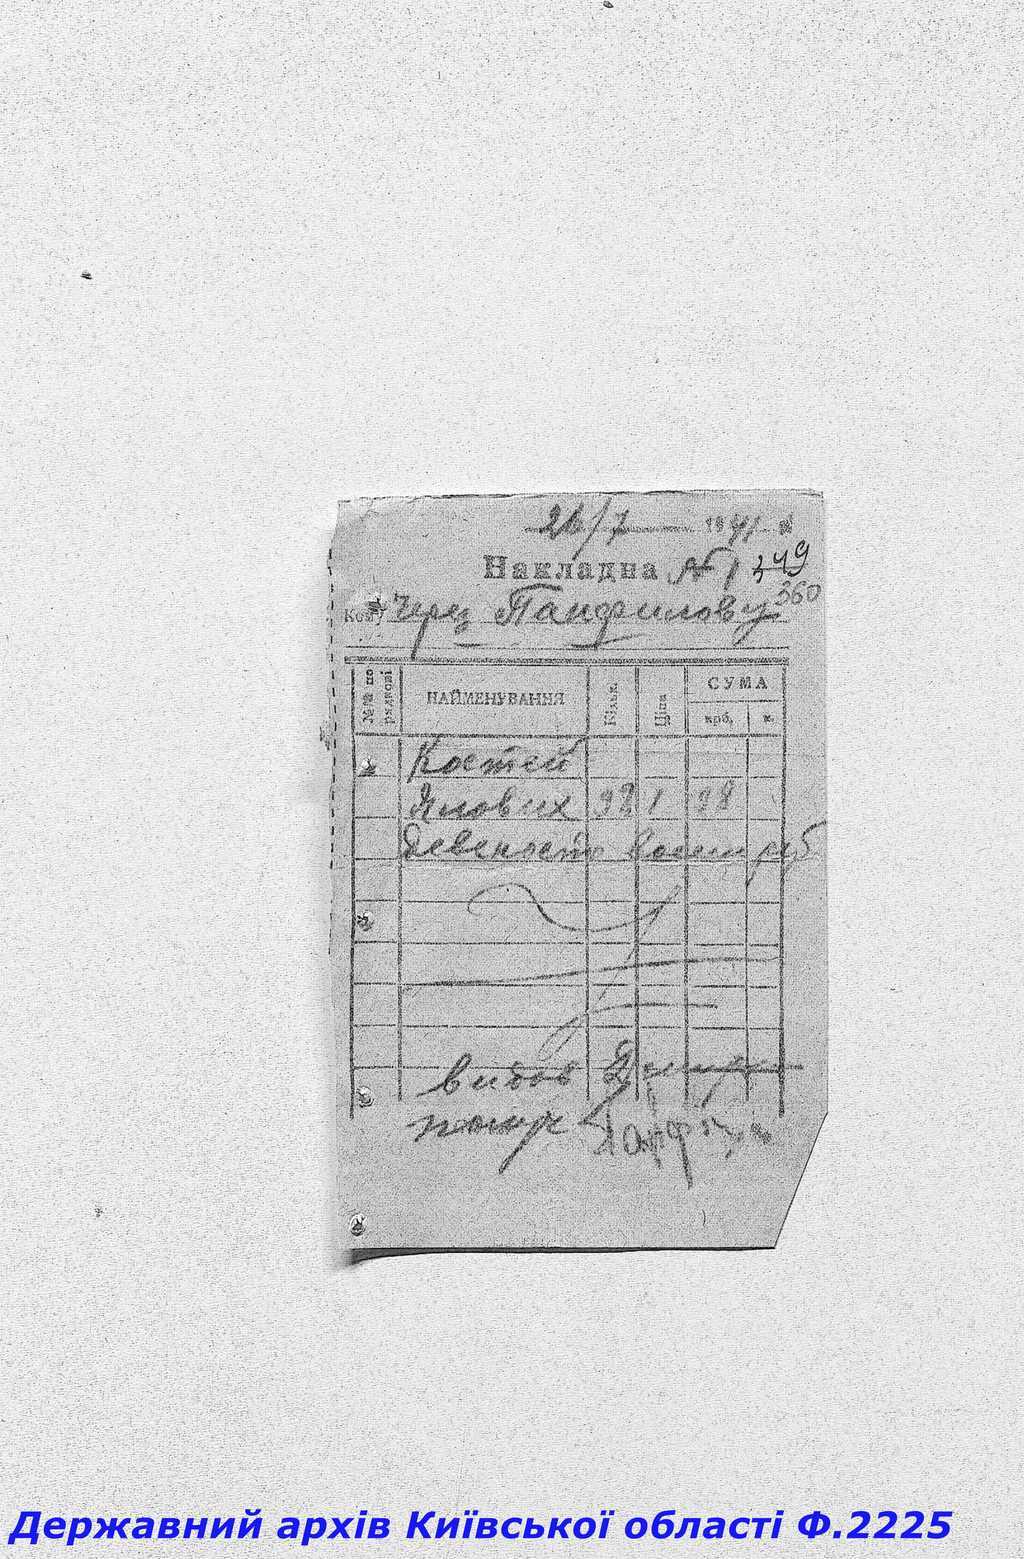 26/7 1941 р
Накладна № 1 349
360
Кому Через Панфилову
№№ по рядкові НАЙМЕНУВАННЯ Кільк. Ціна СУМА
крб. к.
Костей
Ялових 98 1 98
Девеносто восем руб
видав
получ
Державний архів Київської області Ф.2225